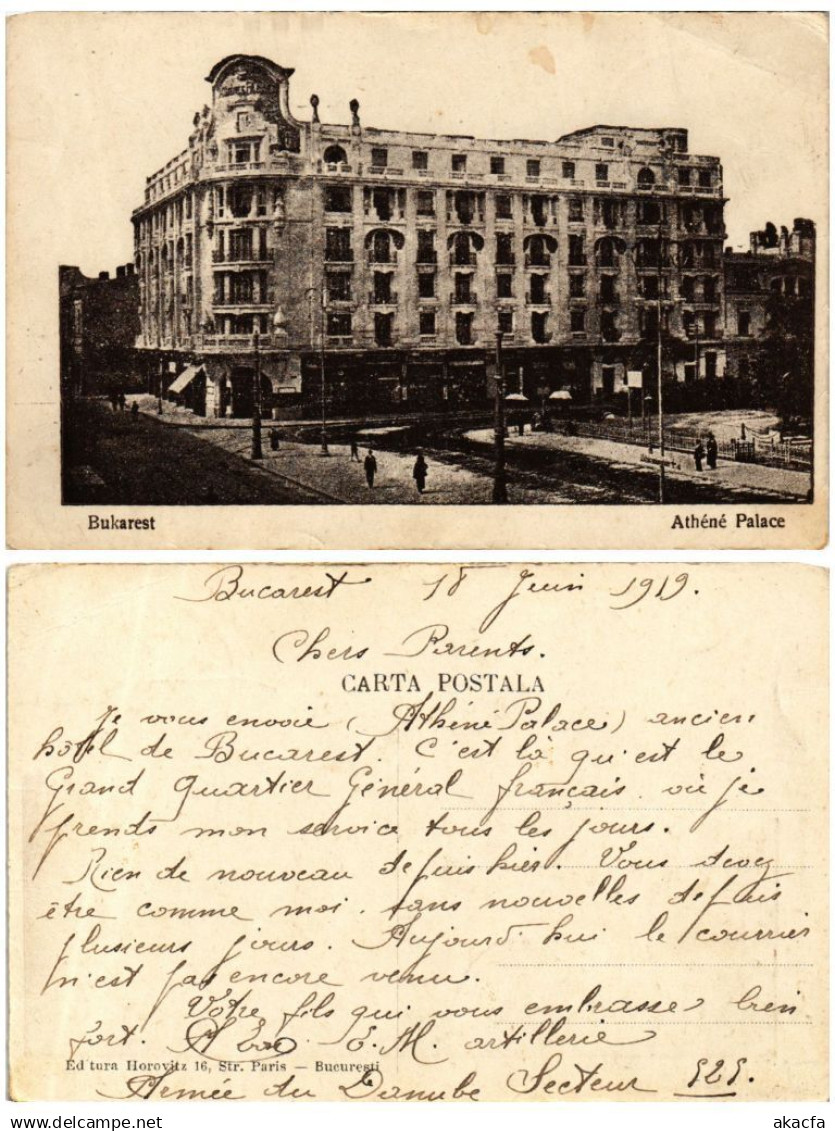 ATHÉNÉE PALACE
Bukarest
Athéné Palace
Bucarest 18 Juin 1919.
Chers Parents.
CARTA POSTALA
Je vous envoie (Athéné Palace) ancien
hotel de Bucarest. C'est là qu'est le
Grand Quartier Général français, où je
prends mon service tous les jours.
Rien de nouveau depuis hier. Vous devez
être comme moi, sans nouvelles depuis
plusieurs jours. Aujourd'hui le courrier
n'est pas encore venu.
Votre fils qui vous embrasse bien
fort. E. M. artillerie
Ed tura Horovitz 16, Str. Paris — Bucureşti
Armée du Danube Secteur 525.
akacfa
delcampe.net